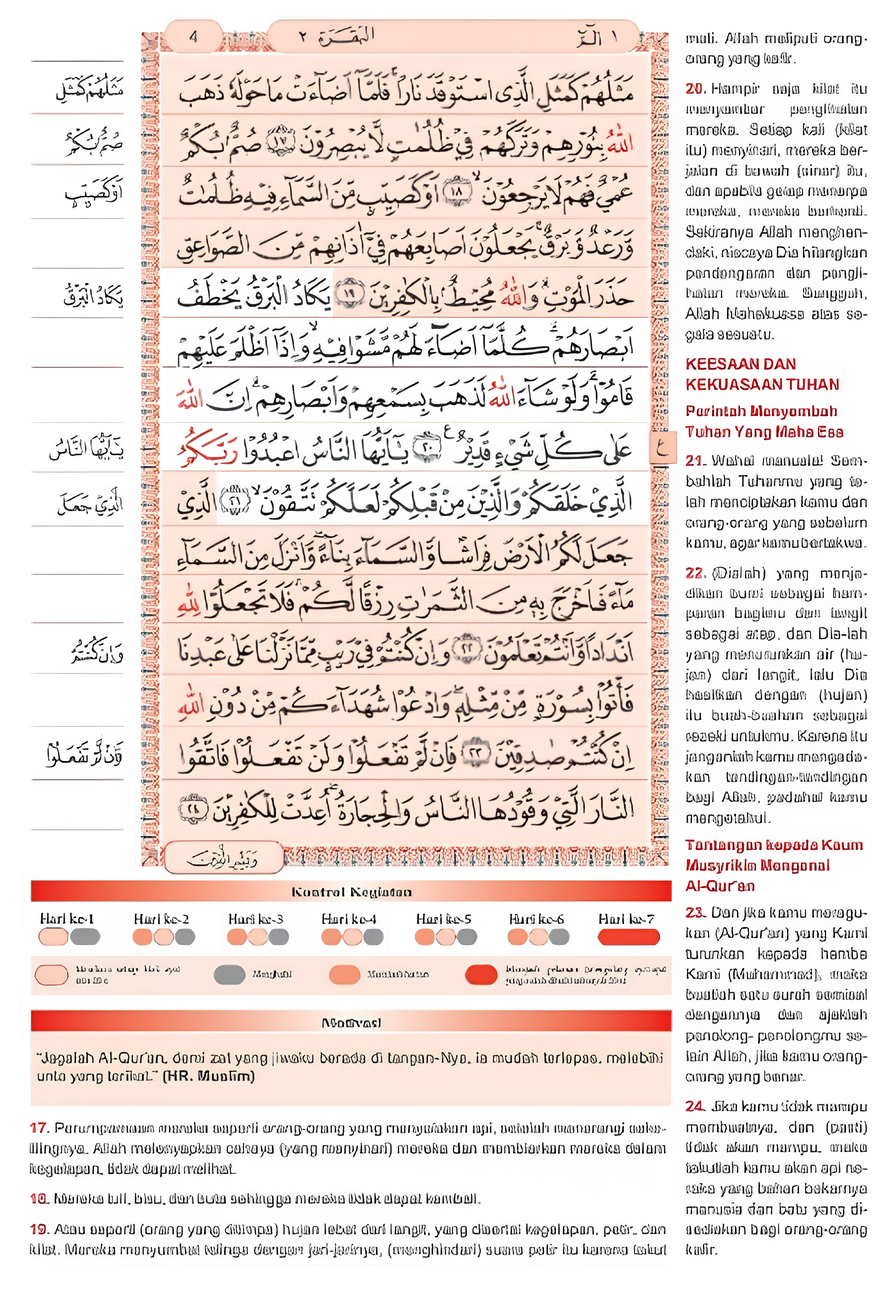 4
البقرة ٢
الۤمّۤ ١
مَثَلُهُمْ كَمَثَلِ الَّذِى اسْتَوْقَدَ نَارًا ۚ فَلَمَّآ اَضَاۤءَتْ مَا حَوْلَهٗ ذَهَبَ
اللّٰهُ بِنُوْرِهِمْ وَتَرَكَهُمْ فِيْ ظُلُمٰتٍ لَّا يُبْصِرُوْنَ ﴿١٧﴾ صُمٌّ ۢ بُكْمٌ
عُمْيٌ فَهُمْ لَا يَرْجِعُوْنَ ۙ ﴿١٨﴾ اَوْ كَصَيِّبٍ مِّنَ السَّمَاۤءِ فِيْهِ ظُلُمٰتٌ
وَّرَعْدٌ وَّبَرْقٌ ۚ يَجْعَلُوْنَ اَصَابِعَهُمْ فِيْٓ اٰذَانِهِمْ مِّنَ الصَّوَاعِقِ
حَذَرَ الْمَوْتِ ۗ وَاللّٰهُ مُحِيْطٌ ۢ بِالْكٰفِرِيْنَ ﴿١٩﴾ يَكَادُ الْبَرْقُ يَخْطَفُ
اَبْصَارَهُمْ ۗ كُلَّمَآ اَضَاۤءَ لَهُمْ مَّشَوْا فِيْهِ ۙ وَاِذَآ اَظْلَمَ عَلَيْهِمْ
قَامُوْا ۗ وَلَوْ شَاۤءَ اللّٰهُ لَذَهَبَ بِسَمْعِهِمْ وَاَبْصَارِهِمْ ۗ اِنَّ اللّٰهَ
عَلٰى كُلِّ شَيْءٍ قَدِيْرٌ ࣖ ﴿٢٠﴾ يٰٓاَيُّهَا النَّاسُ اعْبُدُوْا رَبَّكُمُ
الَّذِيْ خَلَقَكُمْ وَالَّذِيْنَ مِنْ قَبْلِكُمْ لَعَلَّكُمْ تَتَّقُوْنَ ۙ ﴿٢١﴾ الَّذِيْ
جَعَلَ لَكُمُ الْاَرْضَ فِرَاشًا وَّالسَّمَاۤءَ بِنَاۤءً ۖ وَّاَنْزَلَ مِنَ السَّمَاۤءِ
مَاۤءً فَاَخْرَجَ بِهٖ مِنَ الثَّمَرٰتِ رِزْقًا لَّكُمْ ۚ فَلَا تَجْعَلُوْا لِلّٰهِ
اَنْدَادًا وَّاَنْتُمْ تَعْلَمُوْنَ ﴿٢٢﴾ وَاِنْ كُنْتُمْ فِيْ رَيْبٍ مِّمَّا نَزَّلْنَا عَلٰى عَبْدِنَا
فَأْتُوْا بِسُوْرَةٍ مِّنْ مِّثْلِهٖ ۖ وَادْعُوْا شُهَدَاۤءَكُمْ مِّنْ دُوْنِ اللّٰهِ
اِنْ كُنْتُمْ صٰدِقِيْنَ ﴿٢٣﴾ فَاِنْ لَّمْ تَفْعَلُوْا وَلَنْ تَفْعَلُوْا فَاتَّقُوا
النَّارَ الَّتِيْ وَقُوْدُهَا النَّاسُ وَالْحِجَارَةُ ۖ اُعِدَّتْ لِلْكٰفِرِيْنَ ﴿٢٤﴾
ع
وَبَشِّرِ الَّذِيْنَ
مَثَلُهُمْ كَمَثَلِ
صُمٌّ ۢ بُكْمٌ
اَوْ كَصَيِّبٍ
يَكَادُ الْبَرْقُ
يٰٓاَيُّهَا النَّاسُ
الَّذِيْ جَعَلَ
وَاِنْ كُنْتُمْ
فَاِنْ لَّمْ تَفْعَلُوْا
Kontrol Kegiatan
Hari ke-1 Hari ke-2 Hari ke-3 Hari ke-4 Hari ke-5 Hari ke-6 Hari ke-7
Menghafal
Motivasi
"Jagalah Al-Qur'an, demi zat yang jiwaku berada di tangan-Nya, ia mudah terlepas, melebihi
unta yang terikat." (HR. Muslim)
17. Perumpamaan mereka seperti orang-orang yang menyalakan api, setelah menerangi seke-
lilingnya, Allah melenyapkan cahaya (yang menyinari) mereka dan membiarkan mereka dalam
kegelapan, tidak dapat melihat.
18. Mereka tuli, bisu, dan buta sehingga mereka tidak dapat kembali.
19. Atau seperti (orang yang ditimpa) hujan lebat dari langit, yang disertai kegelapan, petir, dan
kilat. Mereka menyumbat telinga dengan jari-jarinya, (menghindari) suara petir itu karena takut
mati. Allah meliputi orang-
orang yang kafir.
20. Hampir saja kilat itu
menyambar penglihatan
mereka. Setiap kali (kilat
itu) menyinari, mereka ber-
jalan di bawah (sinar) itu,
dan apabila gelap menerpa
mereka, mereka berhenti.
Sekiranya Allah menghen-
daki, niscaya Dia hilangkan
pendengaran dan pengli-
hatan mereka. Sungguh,
Allah Mahakuasa atas se-
gala sesuatu.
KEESAAN DAN
KEKUASAAN TUHAN
Perintah Menyembah
Tuhan Yang Maha Esa
21. Wahai manusia! Sem-
bahlah Tuhanmu yang te-
lah menciptakan kamu dan
orang-orang yang sebelum
kamu, agar kamu bertakwa.
22. (Dialah) yang menja-
dikan bumi sebagai ham-
paran bagimu dan langit
sebagai atap, dan Dia-lah
yang menurunkan air (hu-
jan) dari langit, lalu Dia
hasilkan dengan (hujan)
itu buah-buahan sebagai
rezeki untukmu. Karena itu
janganlah kamu mengada-
kan tandingan-tandingan
bagi Allah, padahal kamu
mengetahui.
Tantangan kepada Kaum
Musyrikin Mengenai
Al-Qur'an
23. Dan jika kamu meragu-
kan (Al-Qur'an) yang Kami
turunkan kepada hamba
Kami (Muhammad), maka
buatlah satu surah semisal
dengannya dan ajaklah
penolong- penolongmu se-
lain Allah, jika kamu orang-
orang yang benar.
24. Jika kamu tidak mampu
membuatnya, dan (pasti)
tidak akan mampu, maka
takutlah kamu akan api ne-
raka yang bahan bakarnya
manusia dan batu yang di-
sediakan bagi orang-orang
kafir.